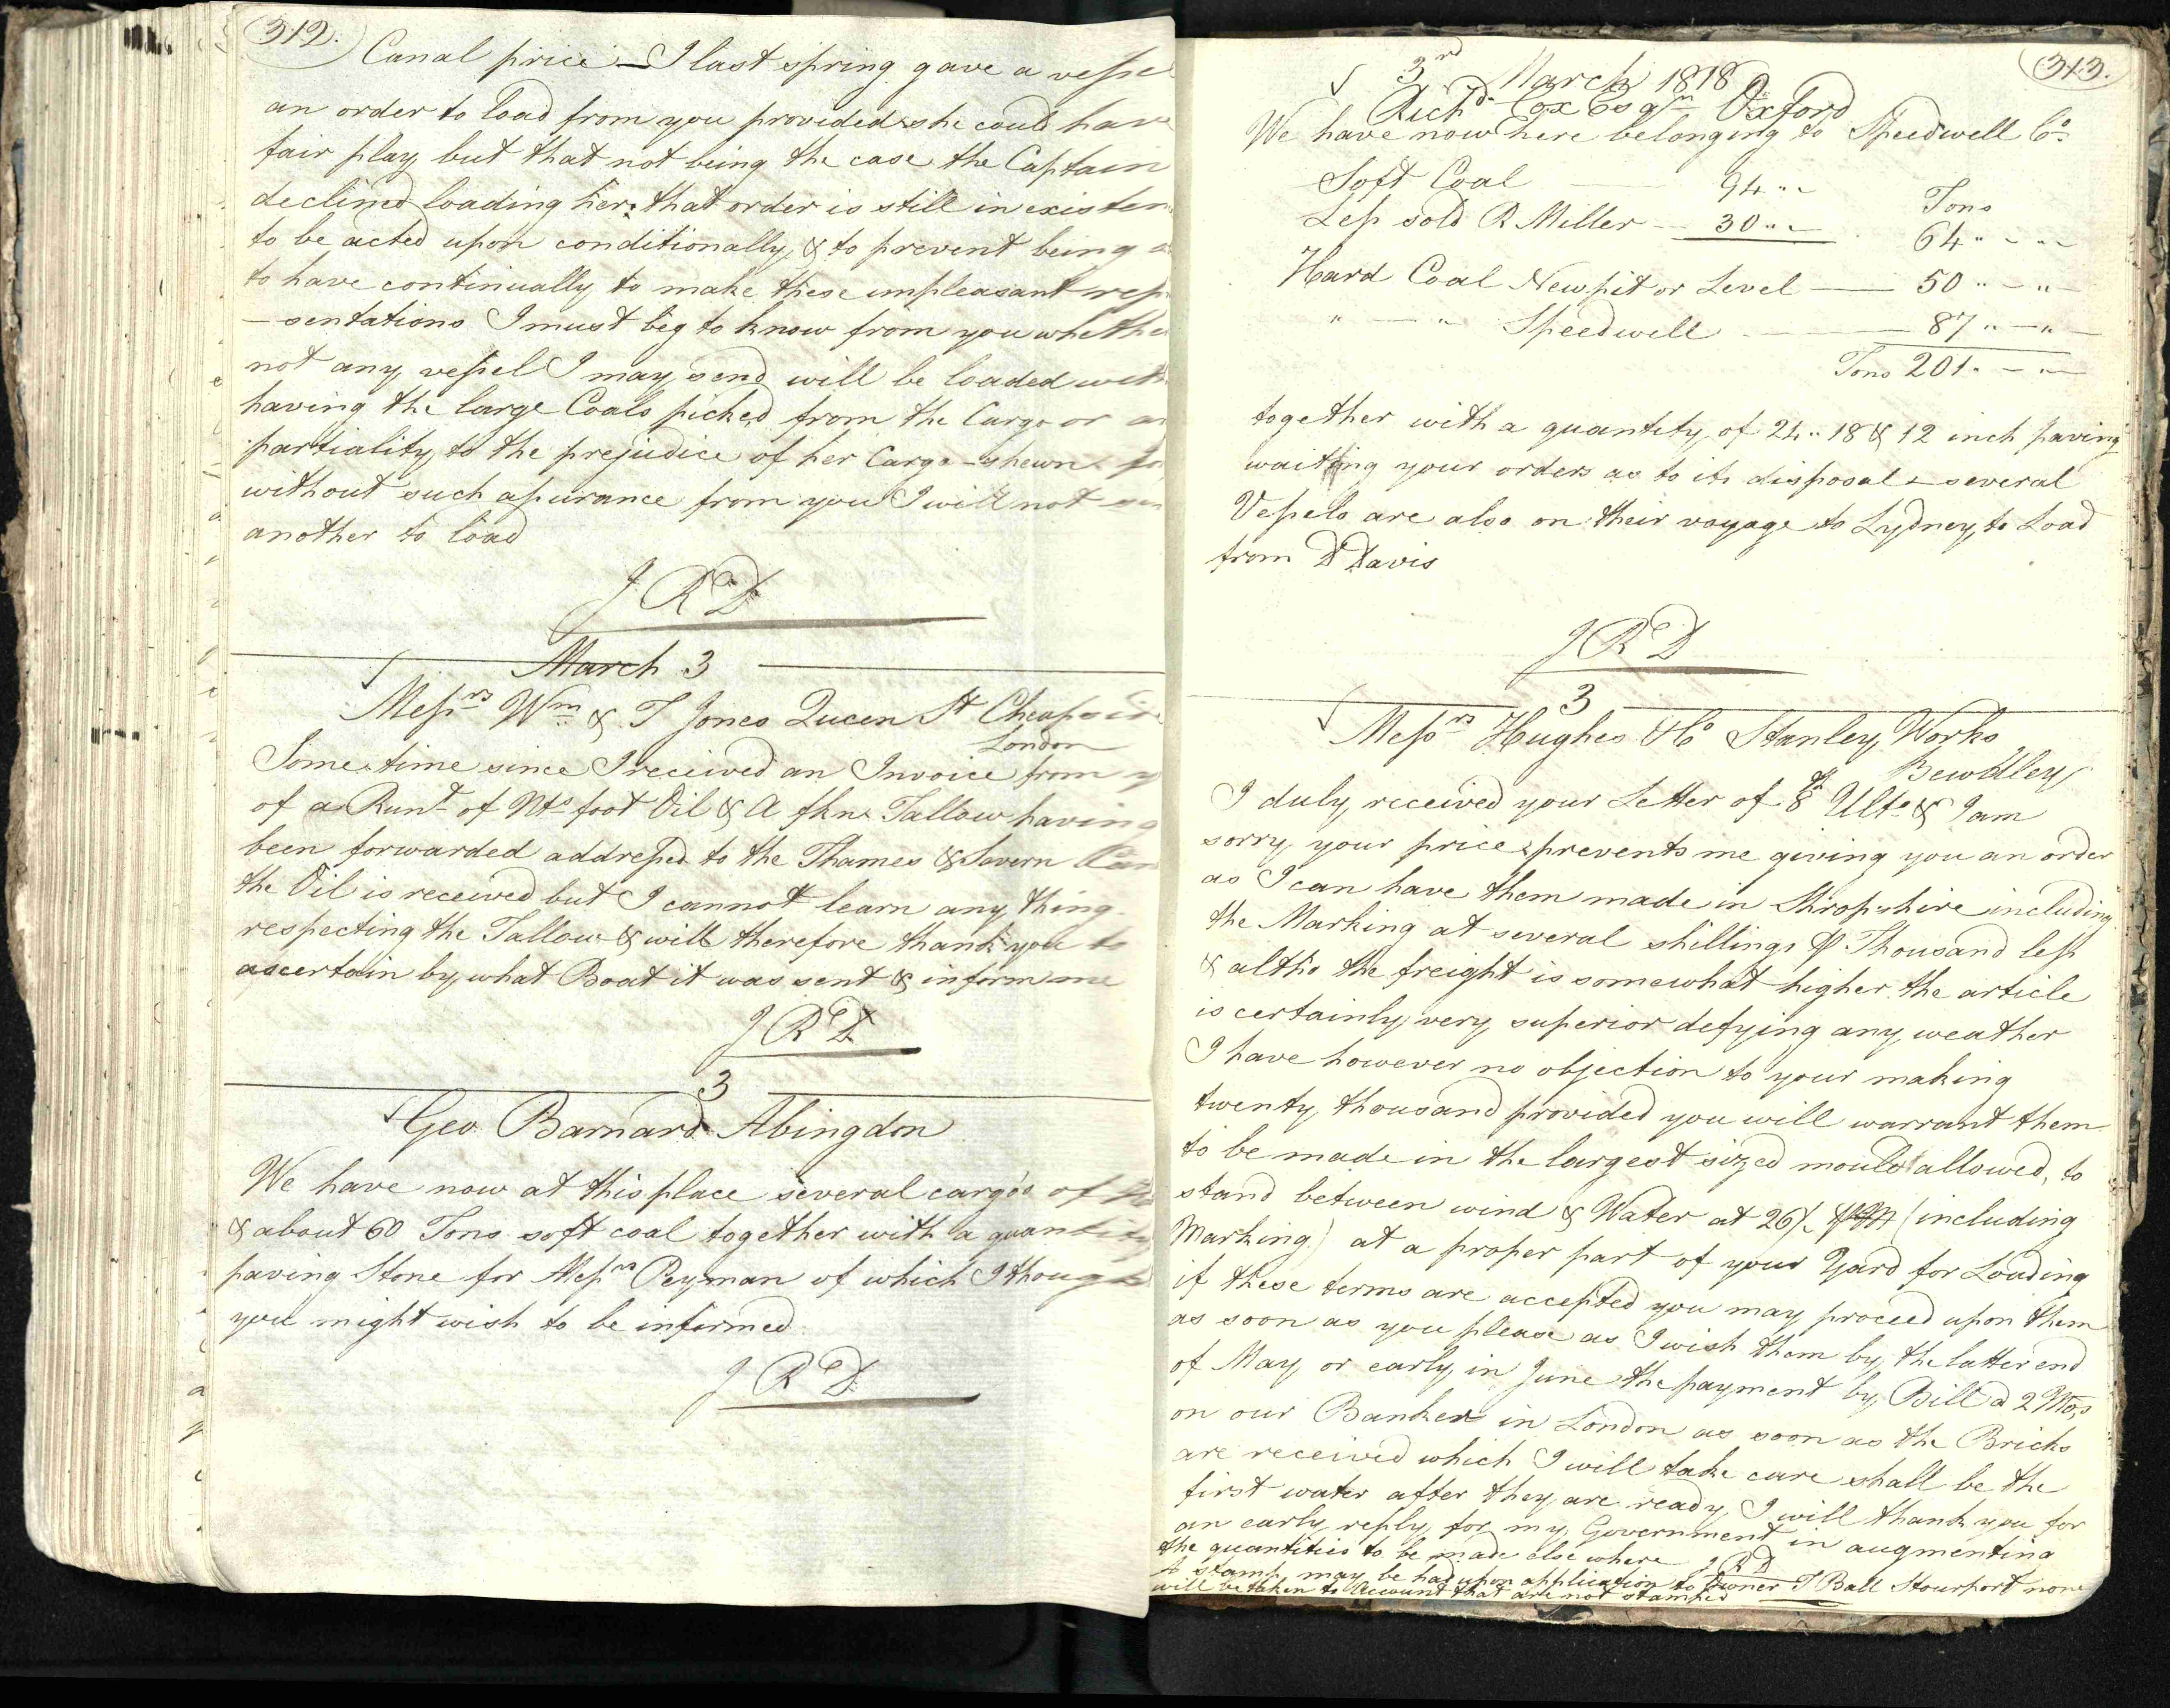 312.
Canal price — I last spring gave a vessel
an order to load from you provided she could have
fair play but that not being the case the Captain
declined loading here that order is still in existen
to be acted upon conditionally, & to prevent being
to have continually to make these unpleasant rep
-sentations I must beg to know from you whether
not any vessel I may send will be loaded with
having the large Coals picked from the Cargo or
partiality to the prejudice of her Cargo shewn
without such assurance from you I will not
another to load
J R D
March 3
Messrs Wm & T Jones Queen St Cheapside
London
Some time since I received an Invoice from
of a Runt of Nts foot Oil & A fkn Tallow having
been forwarded addressed to the Thames & Severn
the Oil is received but I cannot learn any thing
respecting the Tallow & will therefore thank you to
ascertain by what Boat it was sent & inform me
J R D
3
Geo Barnard Abingdon
We have now at this place several cargo's of
& about 60 Tons soft coal together with a quantity
paving Stone for Messrs Peyman of which I thought
you might wish to be informed
J R D
313.
3rd March 1818
Richd Cox Esqr Oxford
We have now here belonging to Speedwell Co
Soft Coal — 94 " "
Tons
Less sold R Miller — 30 " " 64 " - " -
Hard Coal New pit or Level — 50 " - " -
" — " Speedwell — 87 " — " —
Tons 201 " - " -
together with a quantity of 24 " 18 & 12 inch paving
waiting your orders as to its disposal & several
Vessels are also on their voyage to Lydney, to Load
from D Davis
J R D
3
Messrs Hughes & Co Stanley Works
Bewdley
I duly received your Letter of 8th Ulto & I am
sorry your prices prevents me giving you an order
as I can have them made in Shropshire including
the Marking at several shillings ℔ Thousand less
& altho the freight is somewhat higher the article
is certainly very superior defying any weather
I have however no objection to your making
twenty thousand provided you will warrant them
to be made in the largest sized mould allowed, to
stand between wind & Water at 26/- ℔ M (including
Marking) at a proper part of your Yard for Loading
if these terms are accepted you may proceed upon them
as soon as you please as I wish them by the latter end
of May or early in June the payment by Bill a 2 Mos
on our Bankers in London as soon as the Bricks
are received which I will take care shall be the
first water after they are ready, I will thank you for
an early reply for my Government in augmenting
the quantities to be made elsewhere J R D
A stamp may be had upon application to Owner T Ball Stourport none
will be taken to Account that are not stamped